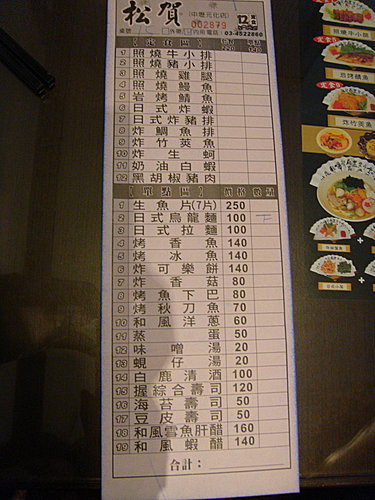 松賀 (中壢元化店)
002879
外帶 內用 電話：03-4522860
【定食區】
1 照燒牛小排
2 照燒豬小排
3 照燒雞腿
4 照燒鰻魚
5 岩烤鯖魚
6 日式炸蝦
7 日式炸豬排
8 炸鯛魚排
9 炸竹莢魚
10 炸生蚵
11 奶油白蝦
12 黑胡椒豬肉
【單點區】 價格 數量
1 生魚片(7片) 250
2 日式烏龍麵 100
3 日式拉麵 100
4 烤香魚 140
5 烤冰魚 140
6 炸可樂餅 140
7 炸香菇 80
8 烤魚下巴 80
9 烤秋刀魚 70
10 和風洋蔥 60
11 蒸蛋 50
12 味噌湯 20
13 蜆仔湯 20
14 白鹿清酒 100
15 握綜合壽司 120
16 海苔壽司 50
17 豆皮壽司 50
18 和風雲魚肝醋 160
19 和風蝦醋 140
合計：
照燒牛小排
岩烤鯖魚
炸竹莢魚